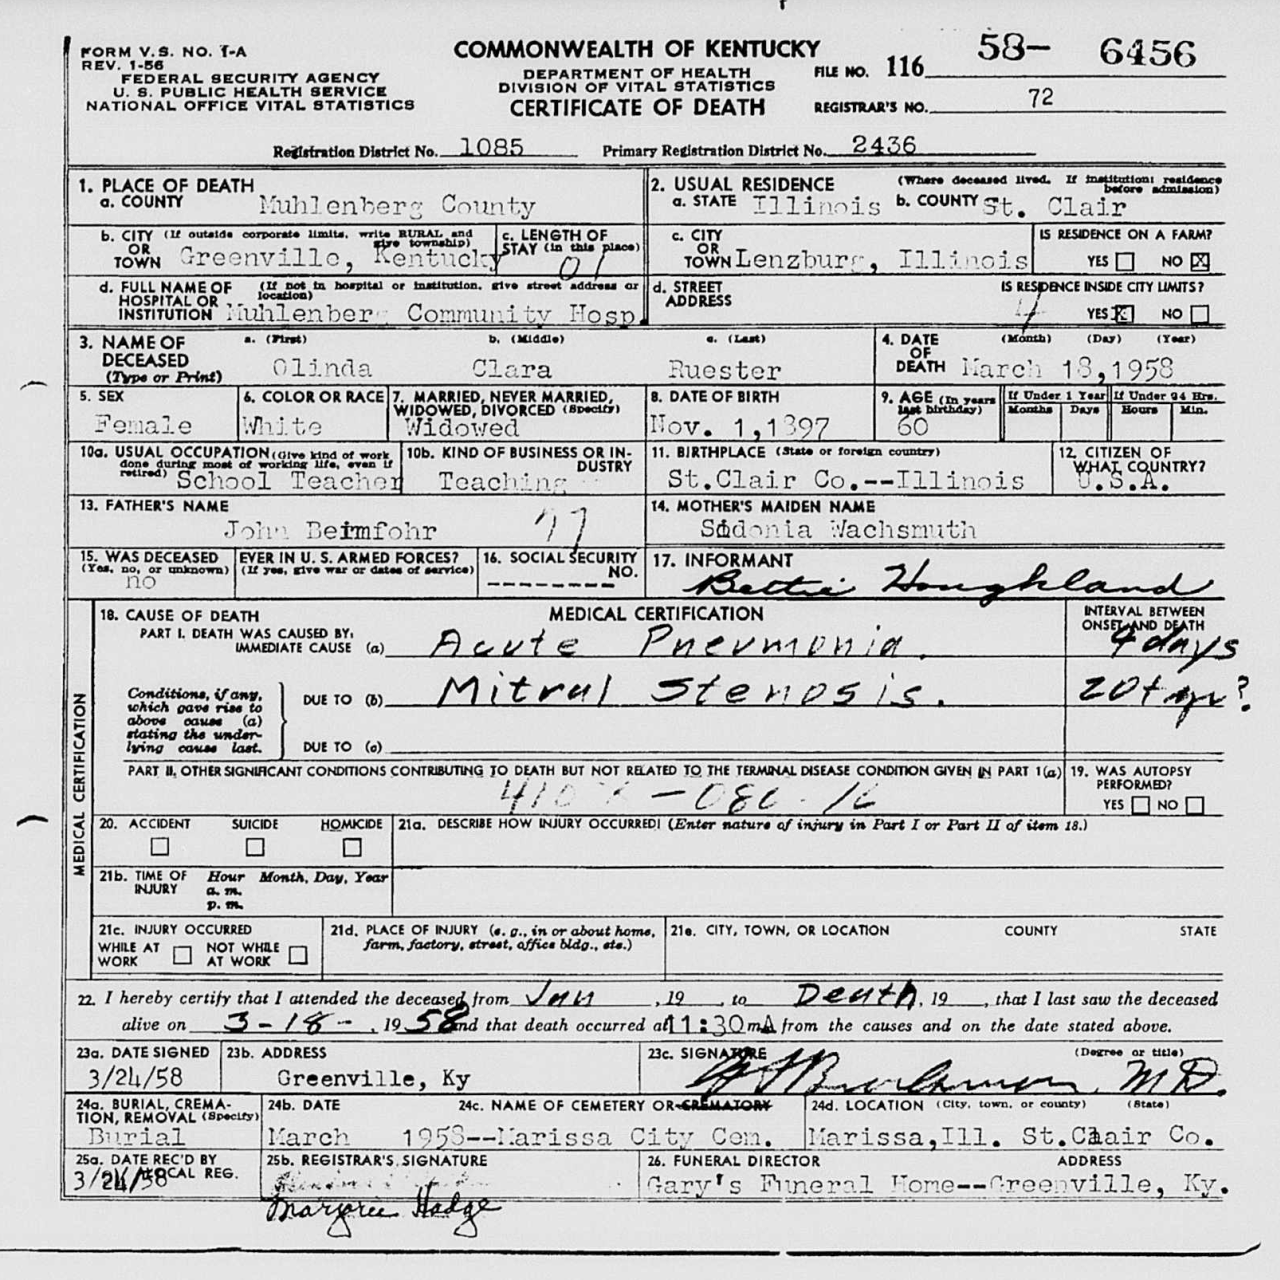 FORM V.S. NO. 1-A
REV. 1-56
FEDERAL SECURITY AGENCY
U. S. PUBLIC HEALTH SERVICE
NATIONAL OFFICE VITAL STATISTICS
COMMONWEALTH OF KENTUCKY
DEPARTMENT OF HEALTH
DIVISION OF VITAL STATISTICS
CERTIFICATE OF DEATH
FILE NO. 116 58- 6456
REGISTRAR'S NO. 72
Registration District No. 1085 Primary Registration District No. 2436
1. PLACE OF DEATH
a. COUNTY Muhlenberg County
2. USUAL RESIDENCE (Where deceased lived. If institution: residence before admission)
a. STATE Illinois b. COUNTY St. Clair
b. CITY (If outside corporate limits, write RURAL and give township)
OR
TOWN Greenville, Kentucky
c. LENGTH OF
STAY (in this place)
01
c. CITY
OR
TOWN Lenzburg, Illinois
IS RESIDENCE ON A FARM?
YES NO X
d. FULL NAME OF (If not in hospital or institution, give street address or location)
HOSPITAL OR
INSTITUTION Muhlenberg Community Hosp.
d. STREET
ADDRESS
IS RESIDENCE INSIDE CITY LIMITS?
4 YES X NO
3. NAME OF
DECEASED
(Type or Print)
a. (First) b. (Middle) c. (Last)
Olinda Clara Ruester
4. DATE
OF
DEATH
(Month) (Day) (Year)
March 18,1958
5. SEX
Female
6. COLOR OR RACE
White
7. MARRIED, NEVER MARRIED,
WIDOWED, DIVORCED (Specify)
Widowed
8. DATE OF BIRTH
Nov. 1,1897
9. AGE (In years last birthday)
60
If Under 1 Year
Months Days
If Under 24 Hrs.
Hours Min.
10a. USUAL OCCUPATION (Give kind of work
done during most of working life, even if
retired) School Teacher
10b. KIND OF BUSINESS OR IN-
DUSTRY
Teaching
11. BIRTHPLACE (State or foreign country)
St.Clair Co.--Illinois
12. CITIZEN OF
WHAT COUNTRY?
U.S.A.
13. FATHER'S NAME
John Beimfohr
77
14. MOTHER'S MAIDEN NAME
Sidonia Wachsmuth
15. WAS DECEASED EVER IN U. S. ARMED FORCES?
(Yes, no, or unknown) (If yes, give war or dates of service)
no
16. SOCIAL SECURITY
NO.
-------
17. INFORMANT
Bettie Houghland
MEDICAL CERTIFICATION
18. CAUSE OF DEATH
MEDICAL CERTIFICATION
INTERVAL BETWEEN
ONSET AND DEATH
PART I. DEATH WAS CAUSED BY:
IMMEDIATE CAUSE (a) Acute Pneumonia. 4 days
Conditions, if any,
which gave rise to
above cause (a)
stating the under-
lying cause last.
DUE TO (b) Mitral Stenosis. 20+ yr?
DUE TO (c)
PART II. OTHER SIGNIFICANT CONDITIONS CONTRIBUTING TO DEATH BUT NOT RELATED TO THE TERMINAL DISEASE CONDITION GIVEN IN PART 1(a)
19. WAS AUTOPSY
PERFORMED?
YES NO
20. ACCIDENT SUICIDE HOMICIDE
21a. DESCRIBE HOW INJURY OCCURRED! (Enter nature of injury in Part I or Part II of item 18.)
21b. TIME OF
INJURY
Hour Month, Day, Year
a. m.
p. m.
21c. INJURY OCCURRED
WHILE AT
WORK
NOT WHILE
AT WORK
21d. PLACE OF INJURY (e. g., in or about home,
farm, factory, street, office bldg., etc.)
21e. CITY, TOWN, OR LOCATION COUNTY STATE
22. I hereby certify that I attended the deceased from Jan , 19 , to Death, 19 , that I last saw the deceased
alive on 3-18- , 1958 and that death occurred at 11:30 mA from the causes and on the date stated above.
23a. DATE SIGNED
3/24/58
23b. ADDRESS
Greenville, Ky
23c. SIGNATURE (Degree or title)
M.D.
24a. BURIAL, CREMA-
TION, REMOVAL (Specify)
Burial
24b. DATE
March 1958--
24c. NAME OF CEMETERY OR CREMATORY
Marissa City Cem.
24d. LOCATION (City, town, or county) (State)
Marissa,Ill. St.Clair Co.
25a. DATE REC'D BY
LOCAL REG.
3/24/58
25b. REGISTRAR'S SIGNATURE
Marjorie Hodge
26. FUNERAL DIRECTOR ADDRESS
Gary's Funeral Home--Greenville, Ky.